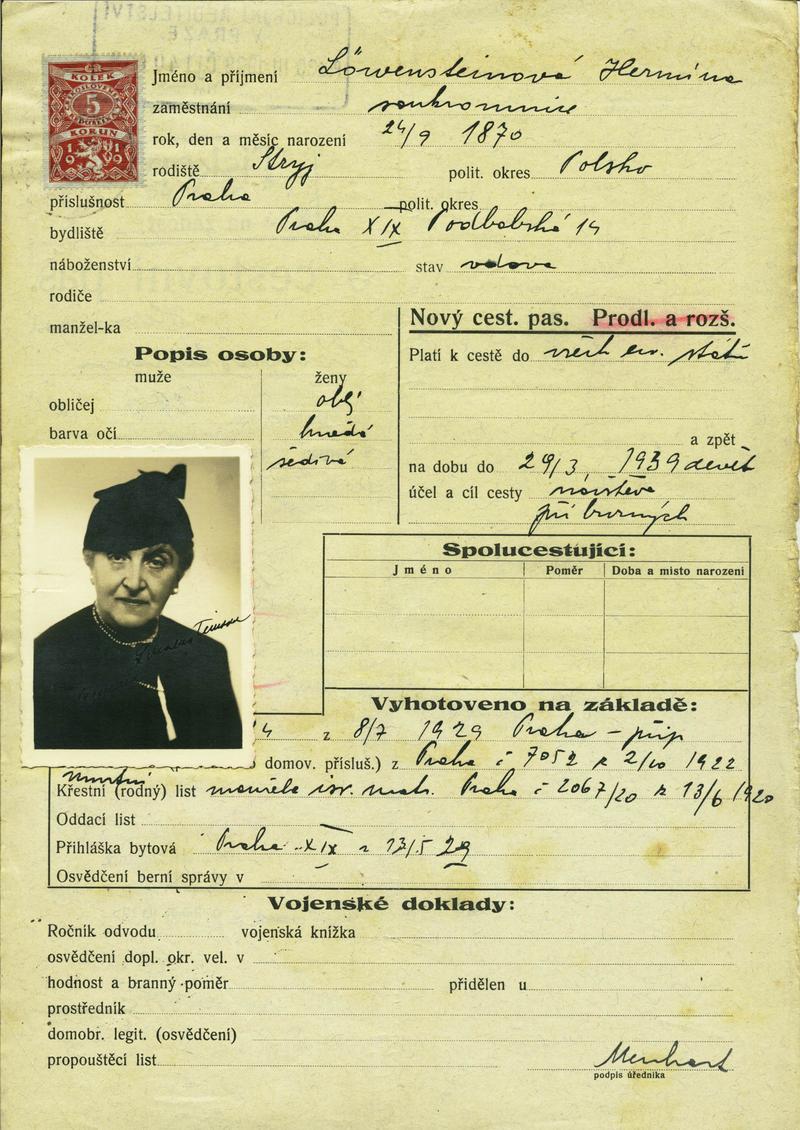 ČR
KOLEK
5
KORUN
1919
Jméno a přijmení Löwensteinová Hermína
zaměstnání soukromnice
rok, den a měsíc narození 24/9 1870
rodiště Stryj polit. okres Polsko
příslušnost Praha polit. okres
bydliště Praha XIX Podbabská 14
náboženství stav vdova
rodiče
manžel-ka
Nový cest. pas. Prodl. a rozš.
Platí k cestě do všech ev. států
a zpět
na dobu do 29/3, 1939 devět
účel a cíl cesty návštěva
příbuzných
Popis osoby:
muže ženy
obličej obl.
barva očí hnědá
šedivá
Spolucestující:
Jméno Poměr Doba a misto narození
Vyhotoveno na základě:
4 z 8/7 1929 Praha - příp
domov. přísluš.) z Praha č 7052 z 2/10 1922
úmrtní
Křestní (rodný) list manžela isr. matr. Praha č 2067/20 z 13/6 1920
Oddací list
Přihláška bytová Praha XIX z 13/5 29
Osvědčení berní správy v
Vojenské doklady:
Ročník odvodu vojenská knížka
osvědčení dopl. okr. vel. v
hodnost a branný poměr přidělen u
prostředník
domobr. legit. (osvědčení)
propouštěcí list
Menhart
podpis úředníka